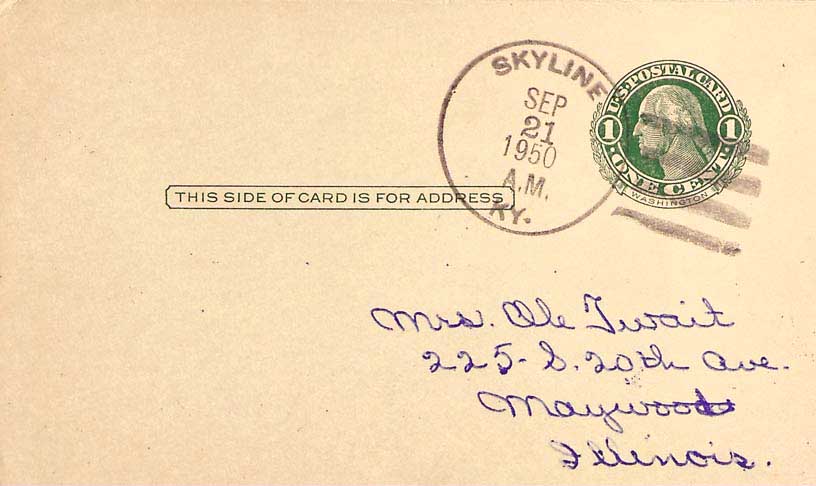 SKYLINE
SEP
21
1950
A.M.
KY.
U.S. POSTAL CARD
1 1
ONE CENT
WASHINGTON
THIS SIDE OF CARD IS FOR ADDRESS
Mrs. Ole Twait
225- S. 20th Ave.
Maywood
Illinois.